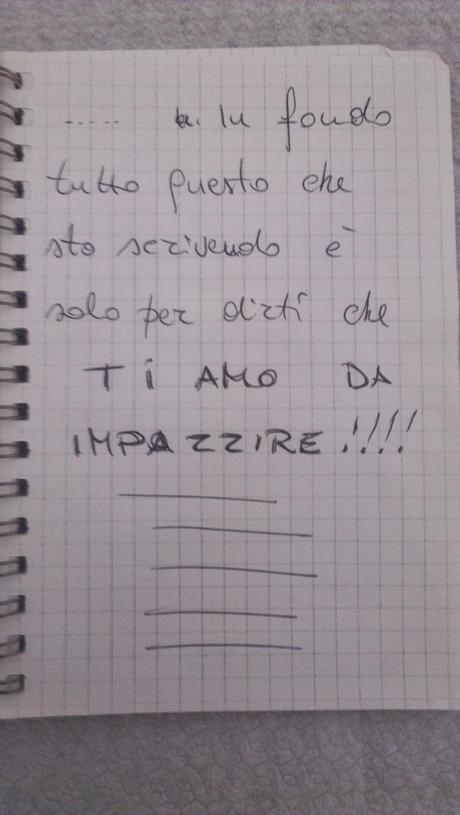 ..... In fondo
tutto questo che
sto scrivendo è
solo per dirti che
TI AMO DA
IMPAZZIRE!!!!